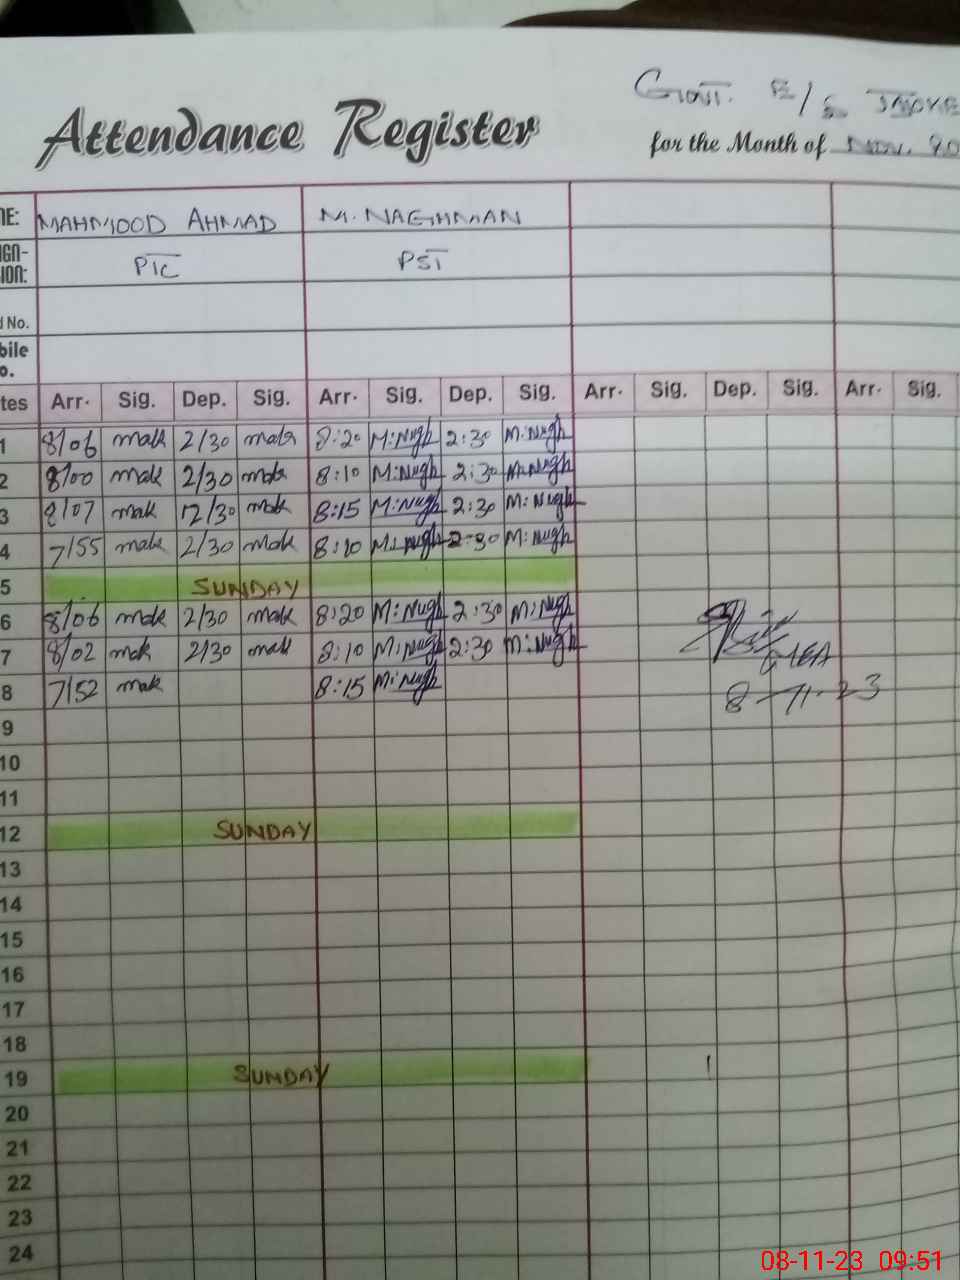 Govt. E/S
Attendance Register
for the Month of Nov. 20
NE: MAHMOOD AHMAD M. NAGHMAN
IGN-
ION: PTC PST
No.
bile
o.
tes Arr. Sig. Dep. Sig. Arr. Sig. Dep. Sig. Arr. Sig. Dep. Sig. Arr. Sig.
1 8/06 mak 2/30 mak 8:20 M:Nugh 2:30 M:Nugh
2 8/00 mak 2/30 mak 8:10 M:Nugh 2:30 M:Nugh
3 8/07 mak 12/30 mak 8:15 M:Nugh 2:30 M:Nugh
4 7/55 mak 2/30 mak 8:10 M:Nugh 2:30 M:Nugh
5 SUNDAY
6 8/06 mak 2/30 mak 8:20 M:Nugh 2:30 M:Nugh
7 8/02 mak 2/30 mak 8:10 M:Nugh 2:30 M:Nugh
8 7/52 mak 8:15 M:Nugh
8-11-23
9
10
11
12 SUNDAY
13
14
15
16
17
18
19 SUNDAY
20
21
22
23
24
08-11-23 09:51